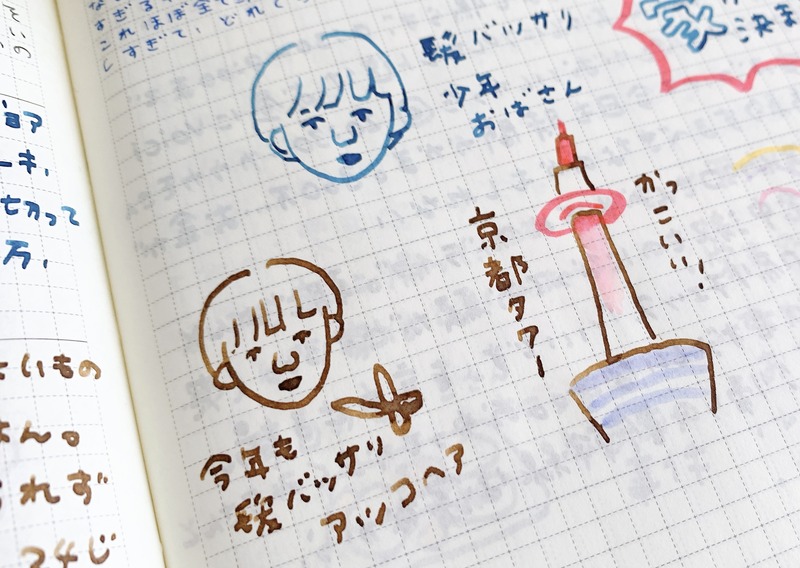 すぎる
これほぼ全て
しすぎて、どれ
髪バッサリ
少年
おばさん
決ま
京都タワー
かっこいい!
今年も
髪バッサリ
アッコヘア
ーキ,
切って
万,
いもの
れず
24じ